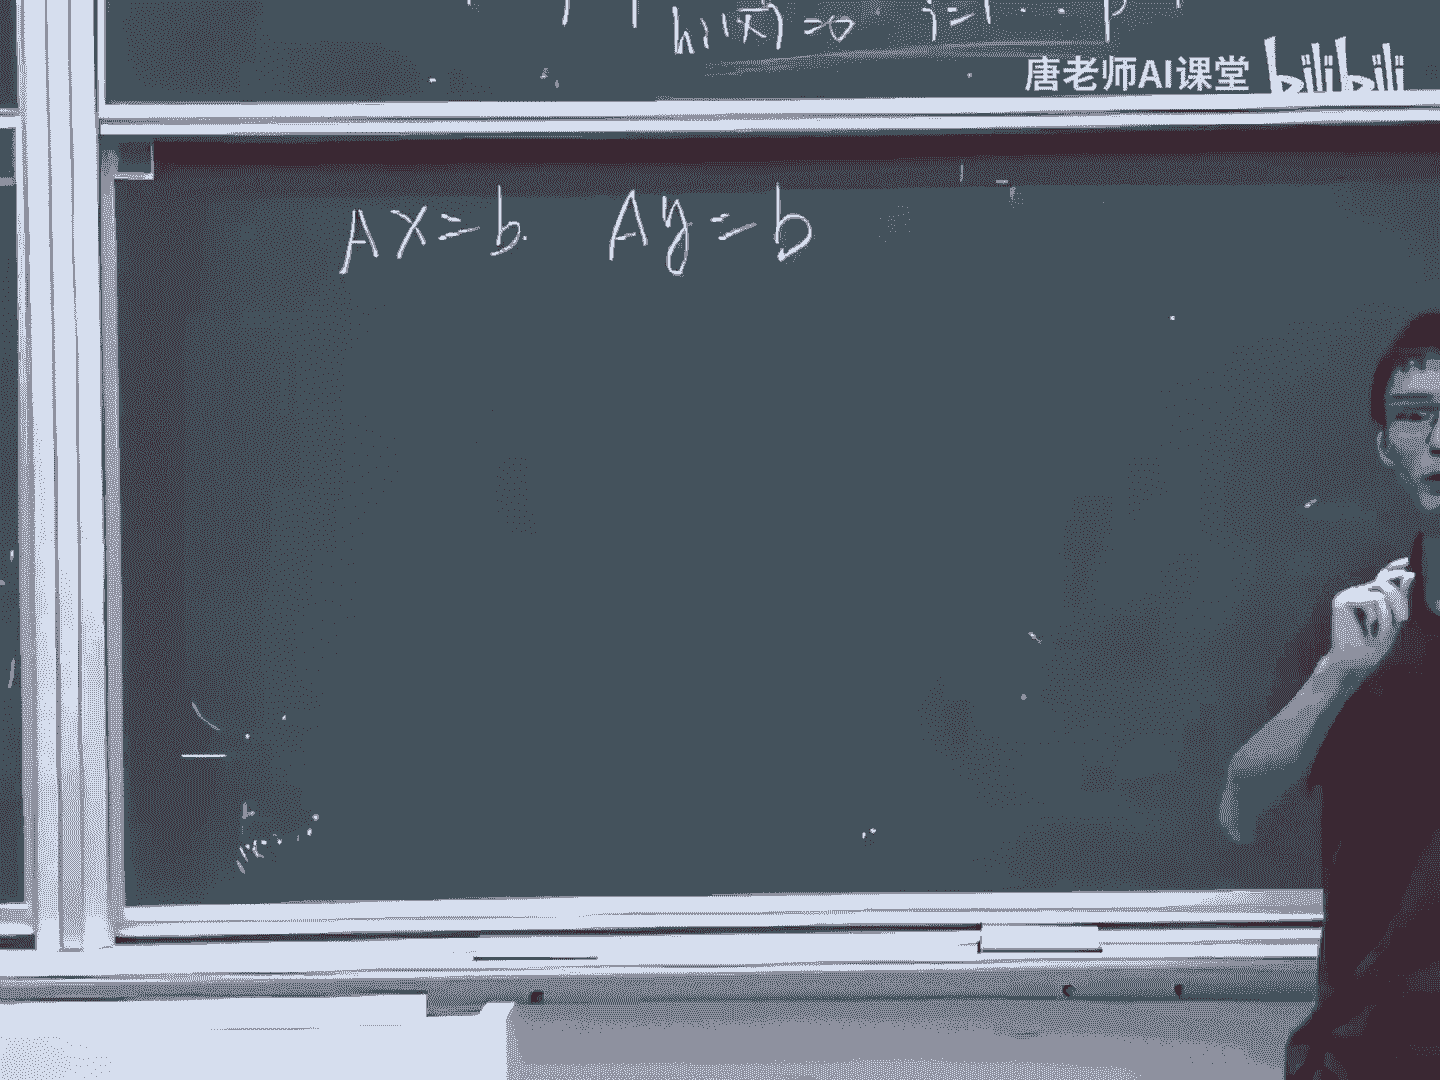 hᵢ(x̄)=0 i=1...p
唐老师AI课堂 bilibili
Ax=b. Ay=b